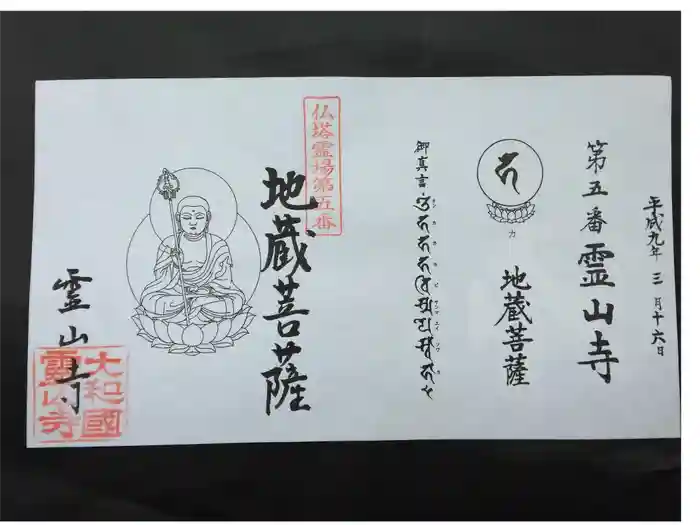 平成九年 三月十六日
第五番 霊山寺
カ
地蔵菩薩
御真言
仏塔霊場第五番
地蔵菩薩
霊山寺
大和國
霊山寺